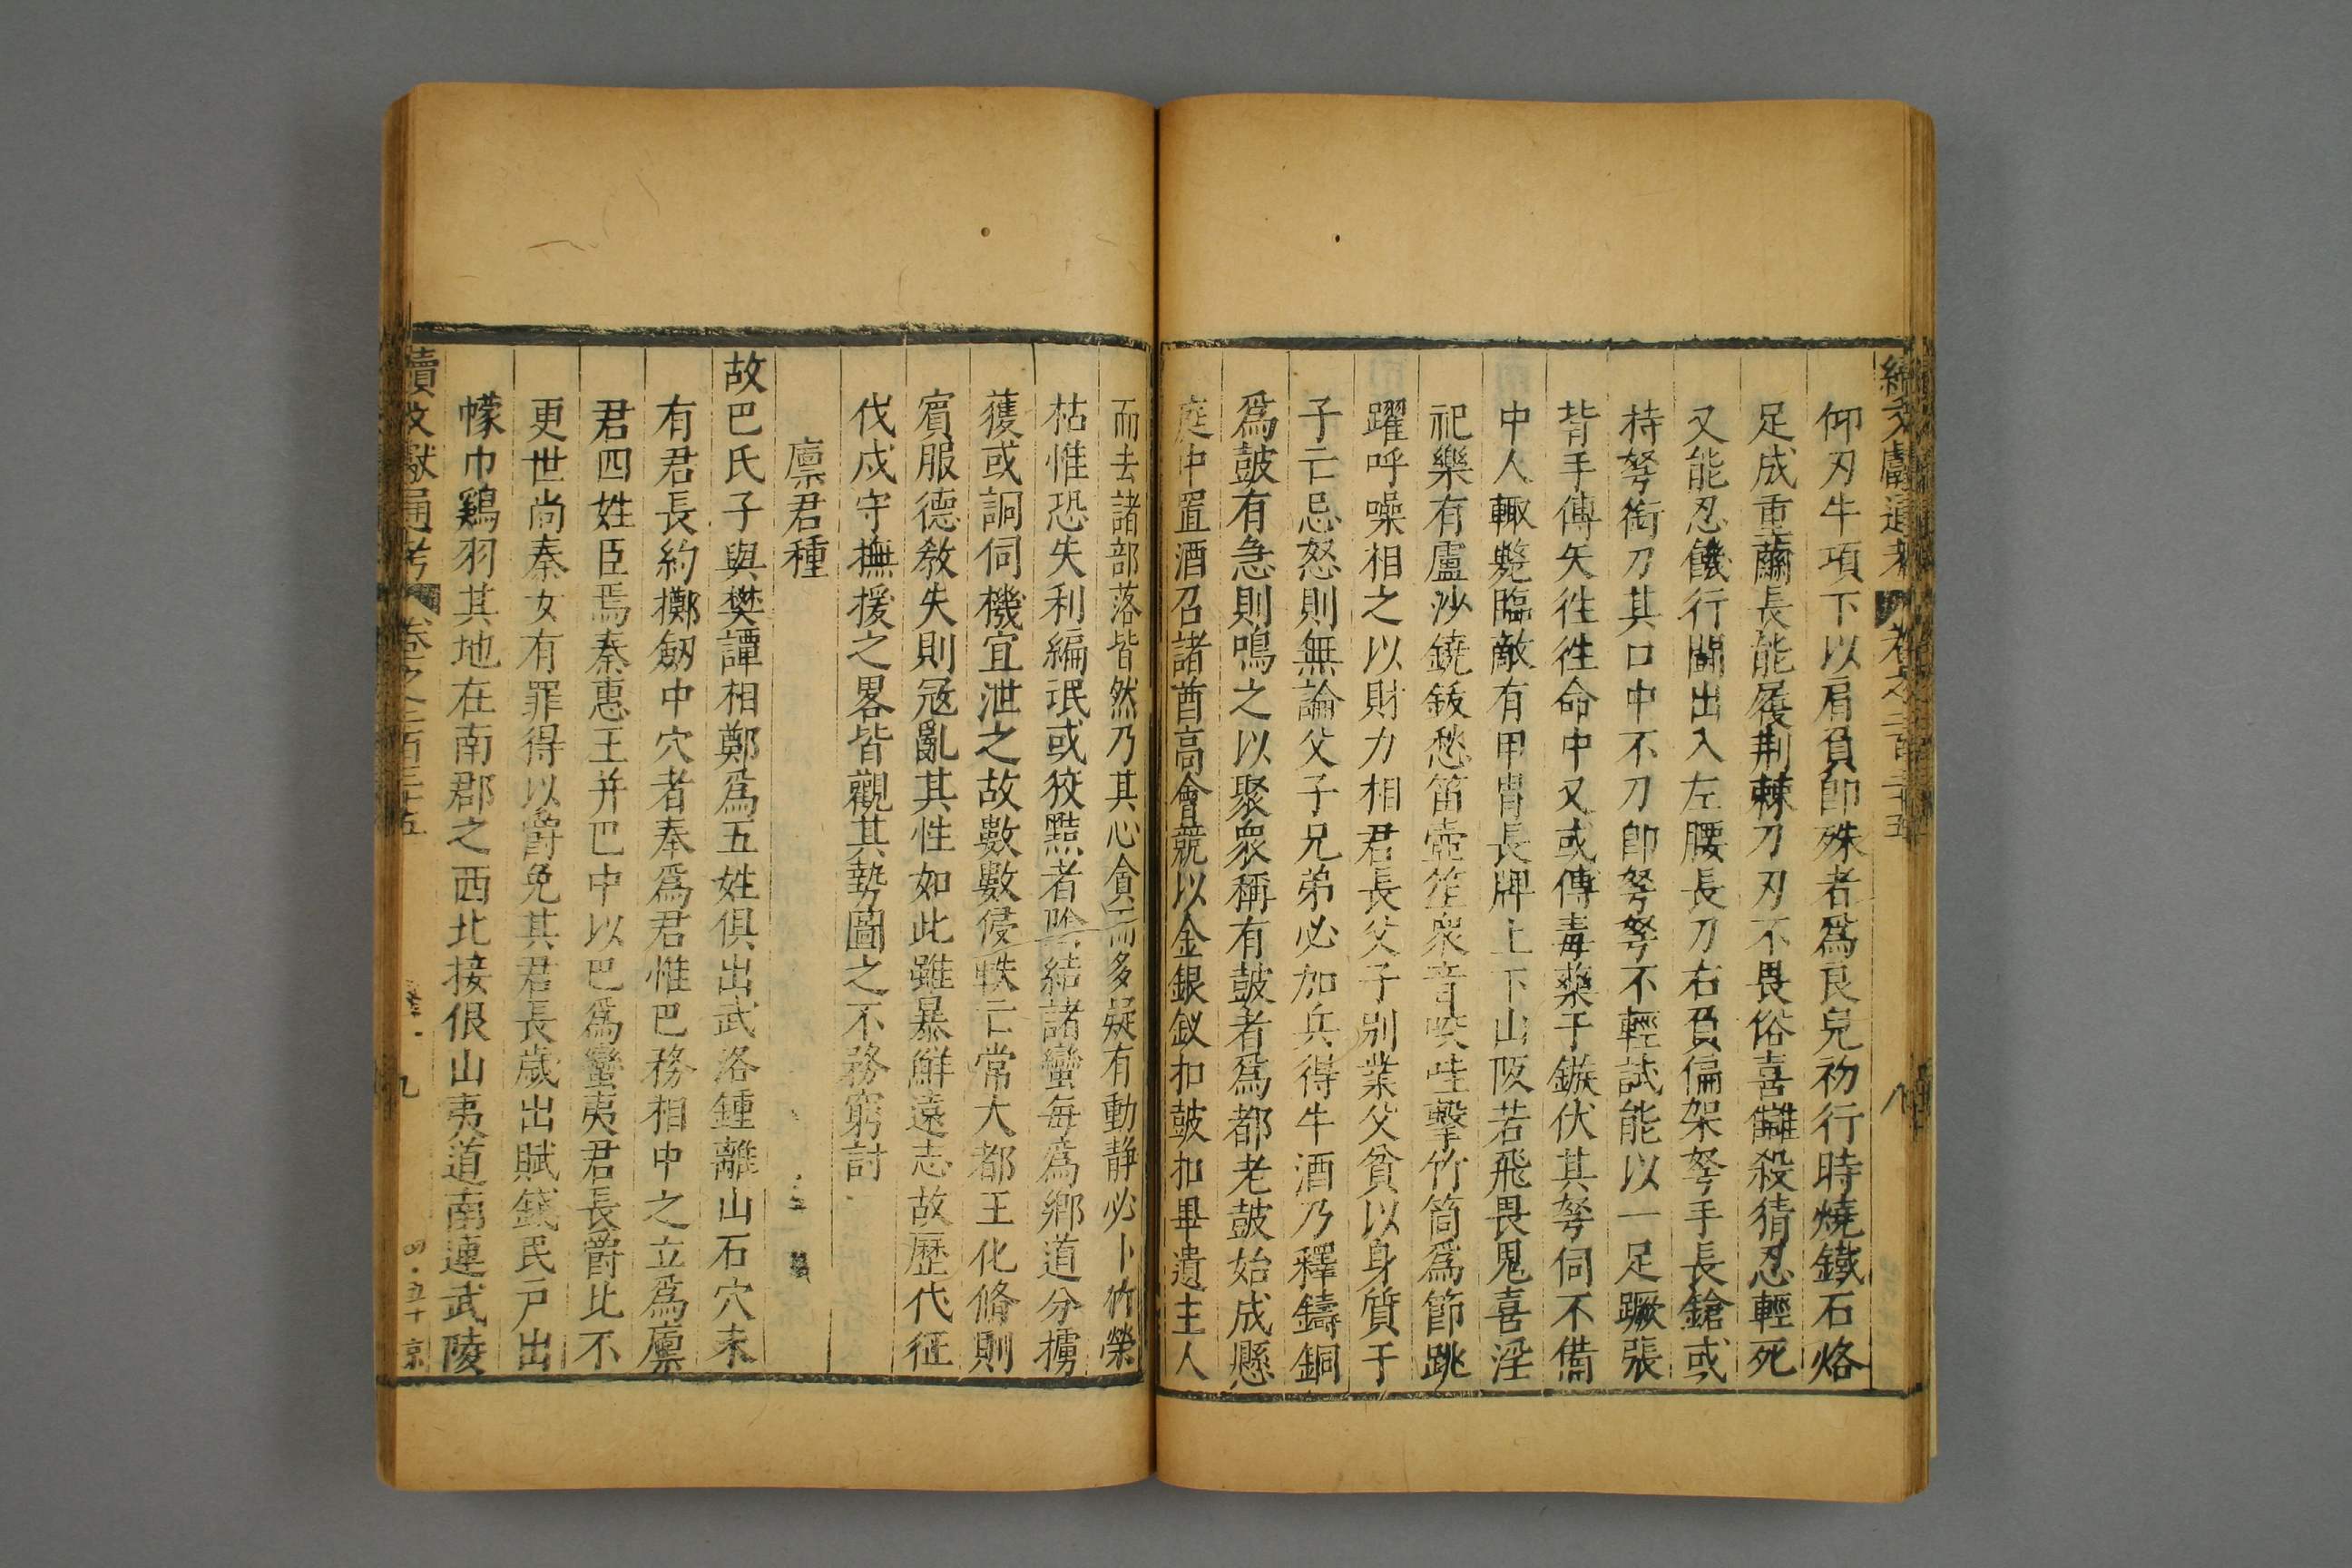 續文獻通考 卷之二百三十五 八
仰刃牛項下以肩負卽殊者爲良兒初行時燒鐵石烙
足成重繭長能履荆棘刀刃不畏俗喜讎殺猜忍輕死
又能忍饑行鬬出入左腰長刀右負偏架弩手長鎗或
持弩銜刀其口中不刀卽弩弩不輕試能以一足蹶張
背手傅矢徃徃命中又或傅毒藥于鏃伏其弩伺不備
中人輙斃臨敵有甲冑長牌上下山阪若飛畏鬼喜淫
祀樂有盧沙鐃鈸愁笛壺笙衆音咬哇擊竹筒爲節跳
躍呼噪相之以財力相君長父子别業父貧以身質于
子亡忌怒則無論父子兄弟必加兵得牛酒乃釋鑄銅
爲鼓有急則鳴之以聚衆稱有鼓者爲都老鼓始成懸
庭中置酒召諸酋高會競以金銀釵扣鼓扣畢遺主人
而去諸部落皆然乃其心貪而多疑有動静必卜竹榮
枯惟恐失利編珉或狡黠者陰結諸蠻每爲鄉道分擄
獲或詗伺機宜泄之故數數侵軼亡常大都王化脩則
賓服德教失則冦亂其性如此雖暴鮮遠志故歷代征
伐戍守撫援之畧皆觀其勢圖之不務窮討
廪君種
故巴氏子與樊譚相鄭爲五姓俱出武洛鍾離山石穴未
有君長約擲劒中穴者奉爲君惟巴務相中之立爲廪
君四姓臣焉秦惠王并巴中以巴爲蠻夷君長爵比不
更世尚秦女有罪得以爵免其君長歲出賦錢民戸出
幏巾鷄羽其地在南郡之西北接佷山夷道南連武陵
續文獻通考 卷之二百三十五 九